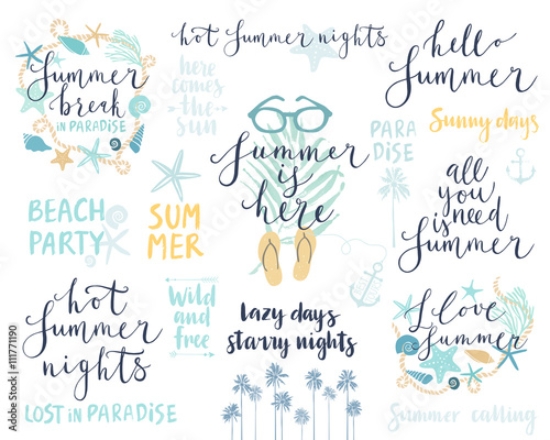 Summer
break
IN PARADISE
hot Summer nights
here
comes
the
sun
hello
Summer
Sunny days
PARA
DISE
Summer
is
here
all
you
is need
Summer
BEACH
PARTY
SUM
MER
hot
Summer
nights
Wild
and
free
lazy days
starry nights
I love
Summer
LOST IN PARADISE
Summer calling
Adobe Stock | #111771190